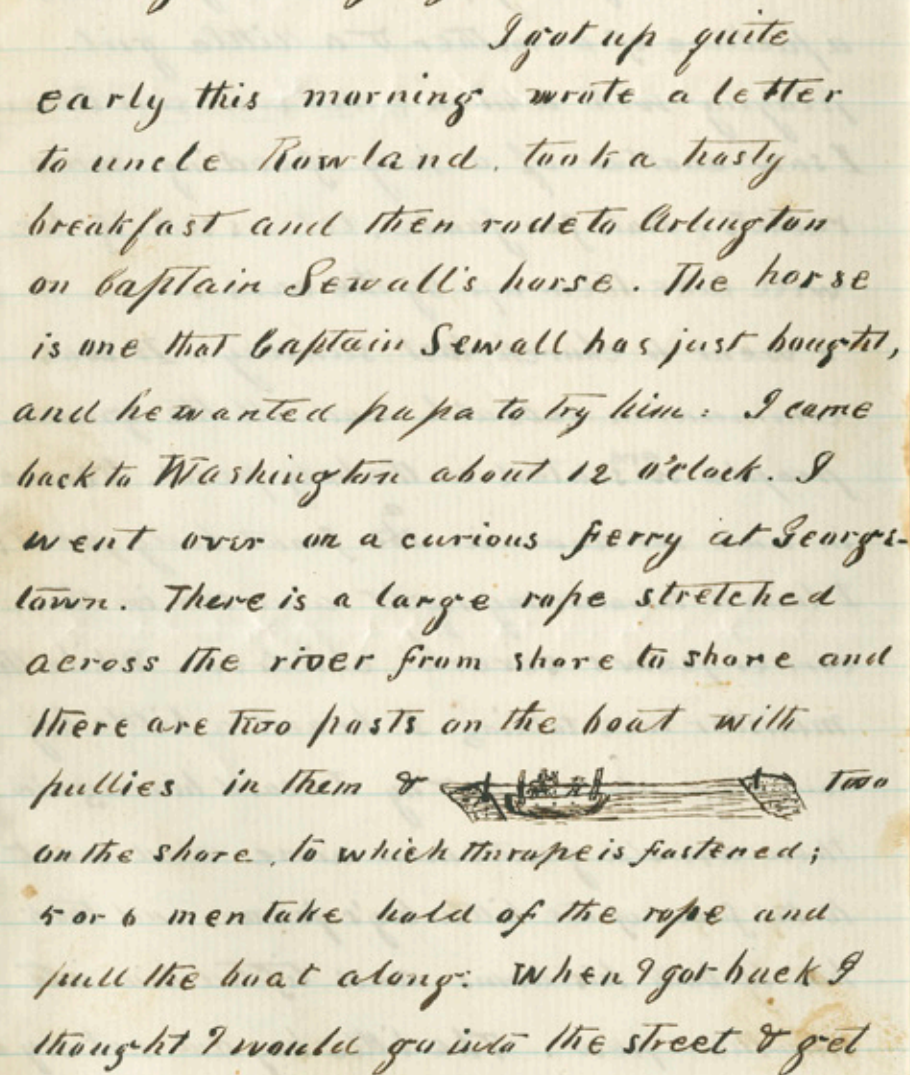 I got up quite
early this morning wrote a letter
to uncle Rowland, took a hasty
breakfast and then rode to Arlington
on Captain Sewall's horse. The horse
is one that Captain Sewall has just bought,
and he wanted papa to try him: I came
back to Washington about 12 o'clock. I
went over on a curious ferry at George-
town. There is a large rope stretched
across the river from shore to shore and
there are two posts on the boat with
pullies in them & two
on the shore, to which the rope is fastened;
5 or 6 men take hold of the rope and
pull the boat along. When I got back I
thought I would go into the street & get